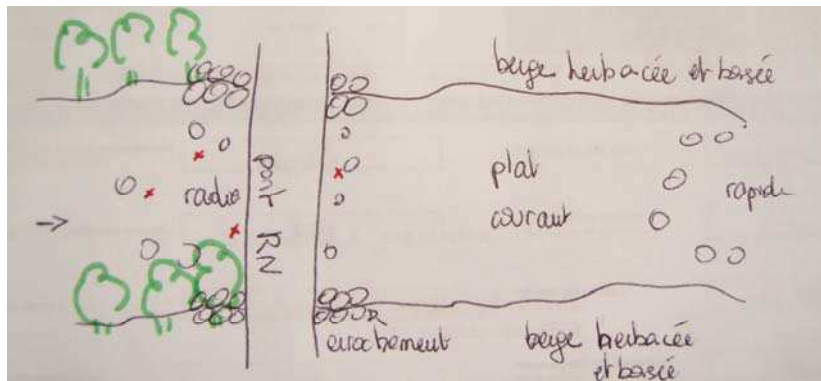 berge herbacée et boisée
pont RN
radier
plat
courant
rapide
enrochement
berge herbacée
et boisée